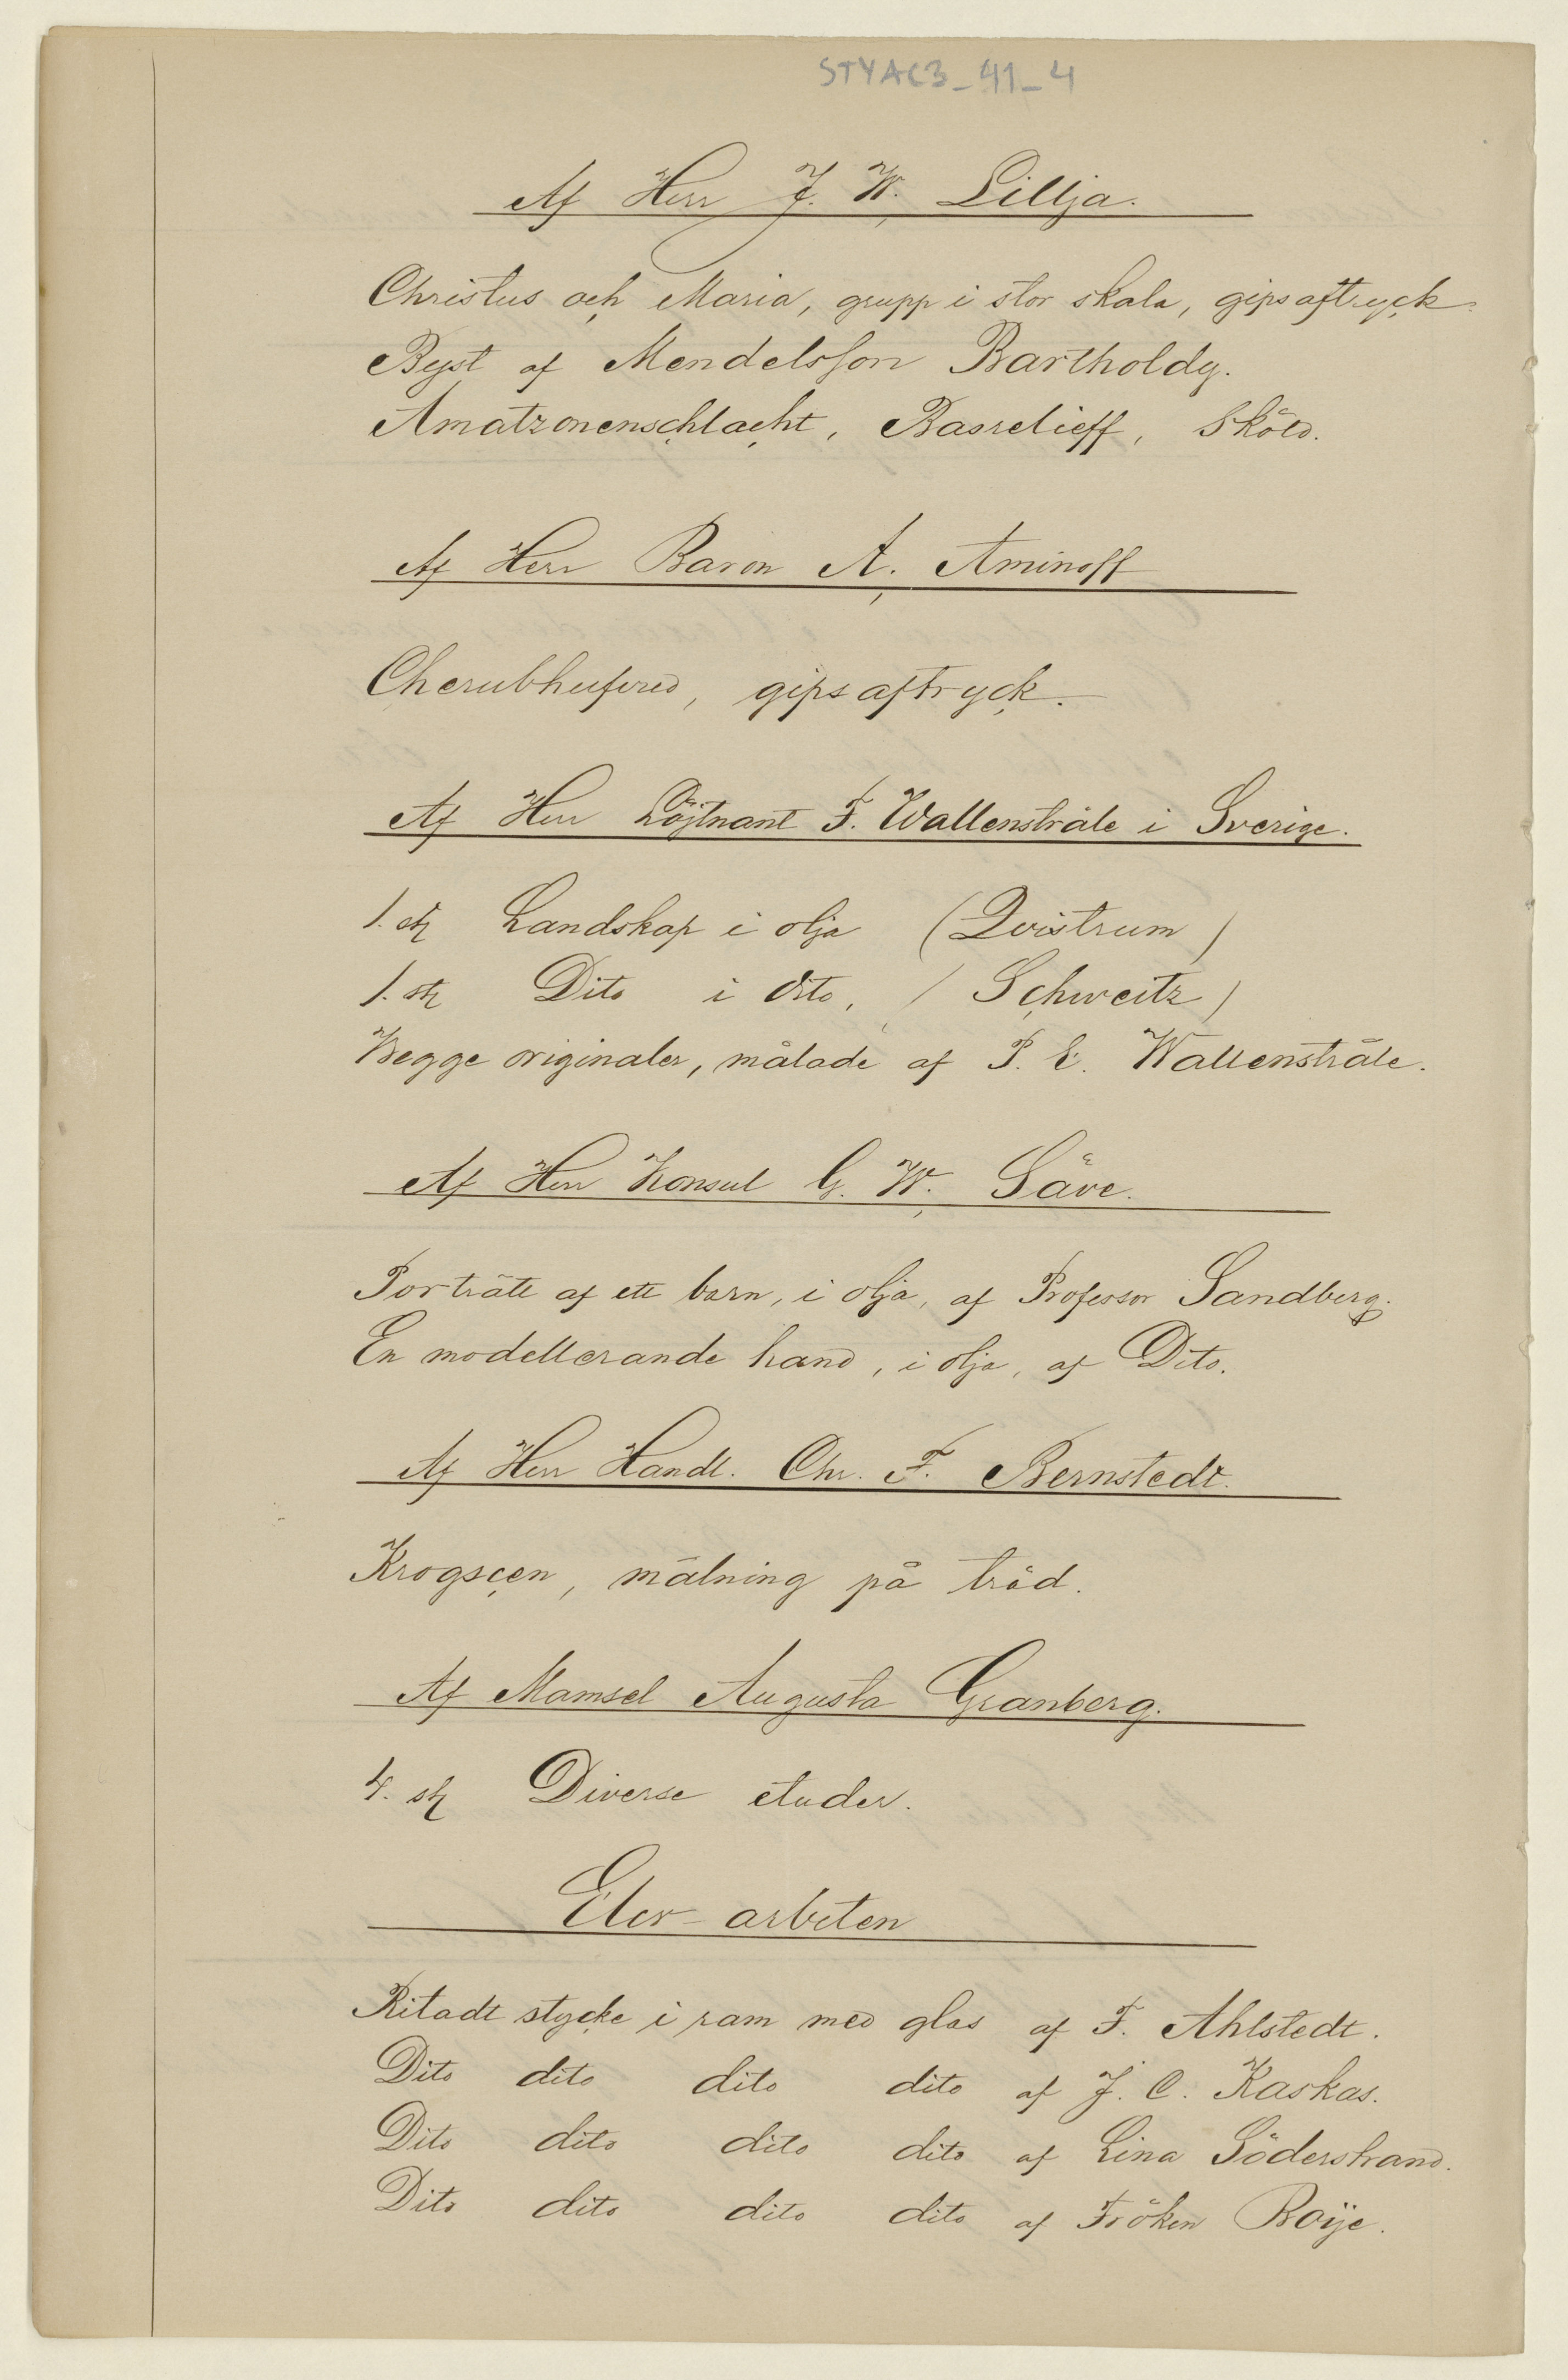 STYAC3_41_4
Af Herr J. W. Lillja.
Christus och Maria, grupp i stor skala, gipsaftryck.
Byst af Mendelsson Bartholdy.
Amatzonenschlacht, Basrelieff, Sköld.
Af Herr Baron A. Aminoff
Cherubhufvud, gipsaftryck.
Af Herr Löjtnant F. Wallenstråle i Sverige.
1. st Landskap i olja (Qvistrum)
1. st Dito i dito, (Schweitz)
Begge originaler, målade af P. E. Wallenstråle.
Af Herr Konsul G. W. Säve.
Porträtt af ett barn, i olja, af Professor Sandberg.
En modellerande hand, i olja, af Dito.
Af Herr Handl. Chr. F. Bernstedt.
Krogscen, målning på träd.
Af Mamsel Augusta Granberg.
4. st Diverse etuder.
Elev-arbeten
Ritadt stycke i ram med glas af F. Ahlstedt.
Dito dito dito dito af J. C. Kaskas.
Dito dito dito dito af Lina Söderstrand.
Dito dito dito dito af Fröken Boije.